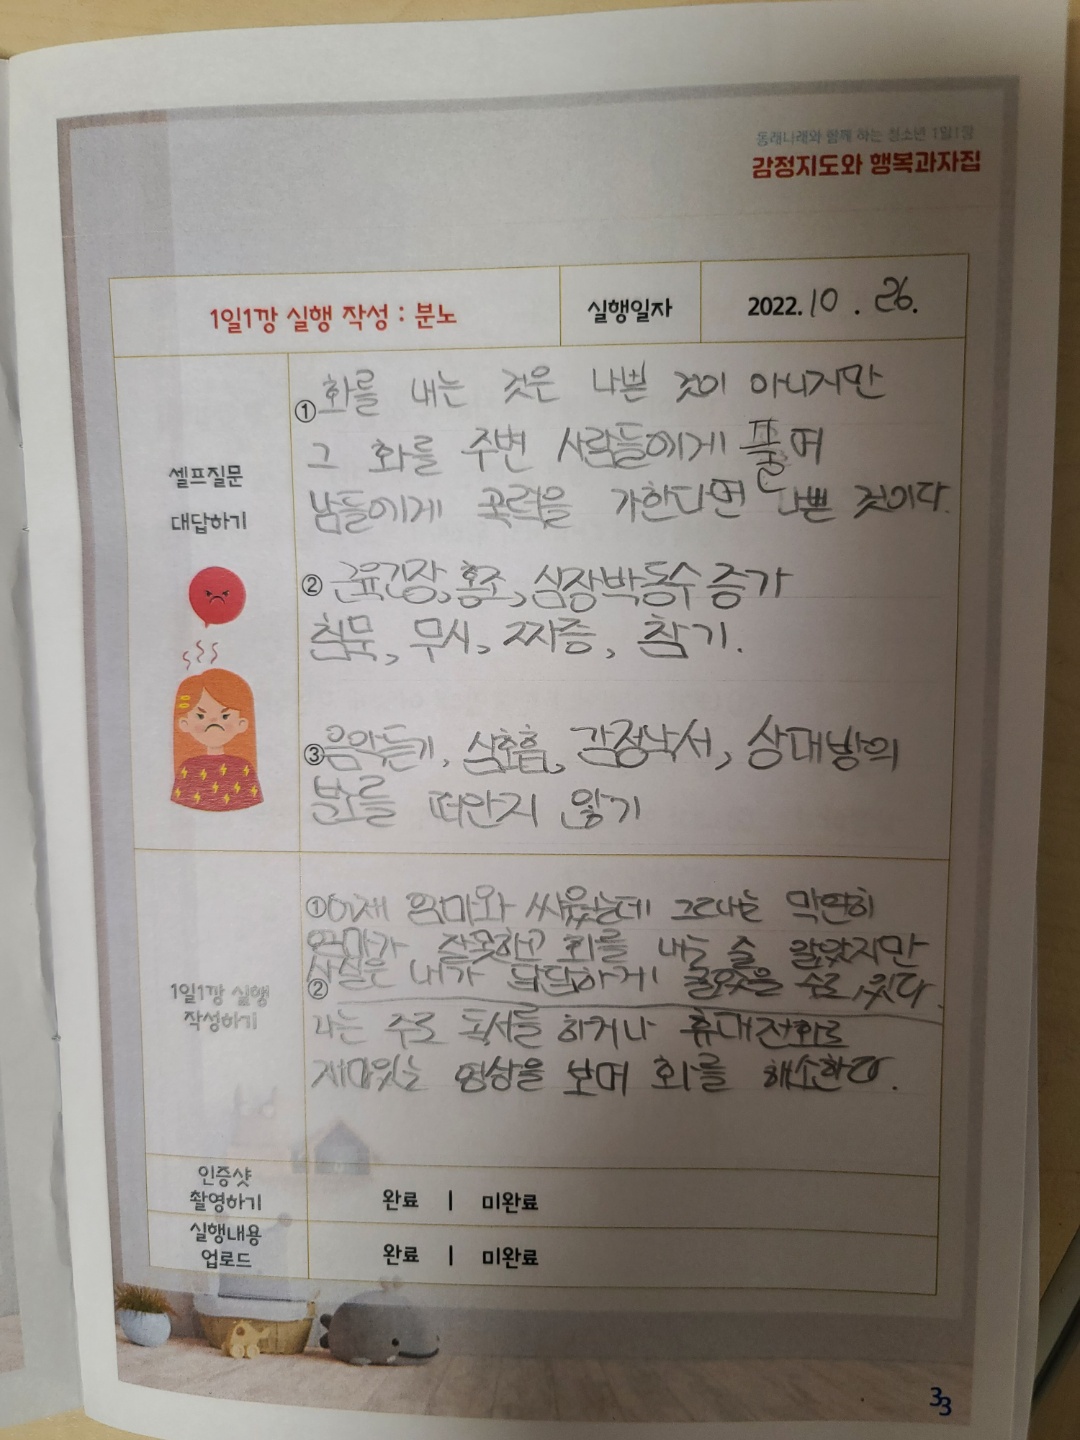 동래나래와 함께 하는 청소년 1일1깡
감정지도와 행복과자집
1일1깡 실행 작성 : 분노
실행일자
2022. 10 . 26.
셀프질문
대답하기
① 화를 내는 것은 나쁜 것이 아니지만
그 화를 주변 사람들에게 풀며
남들에게 폭력을 가한다면 나쁜 것이다.
② 근육긴장, 홍조, 심장박동수 증가
침묵, 무시, 짜증, 참기.
③ 음악듣기, 심호흡, 감정낙서, 상대방의
분노를 떠안지 않기
1일1깡 실행
작성하기
① 어제 엄마와 싸웠는데 그때는 막연히
엄마가 잘못하고 화를 내는 줄 알았지만
사실은 내가 답답하게 굴었을 수도 있다.
②
나는 주로 독서를 하거나 휴대전화로
재미있는 영상을 보며 화를 해소한다.
인증샷
촬영하기
완료 | 미완료
실행내용
업로드
완료 | 미완료
33